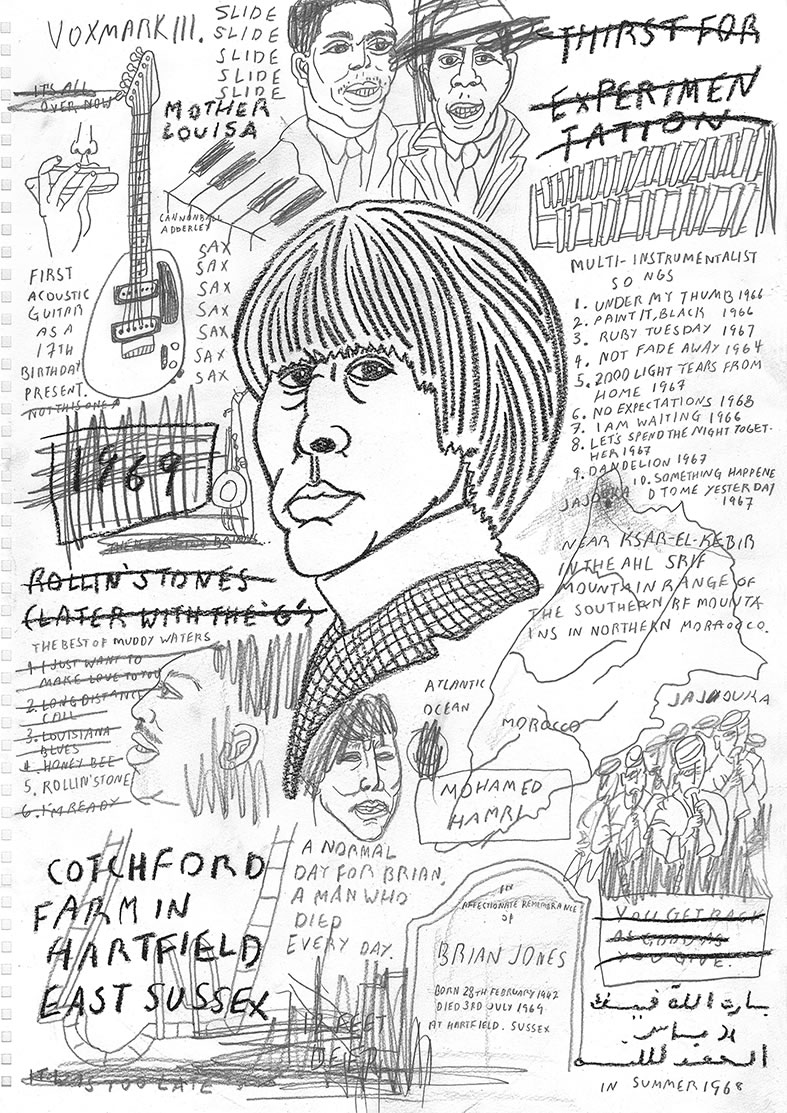 VOXMARK III.
SLIDE
SLIDE
SLIDE
SLIDE
SLIDE
MOTHER
LOUISA
THIRST FOR
EXPERIMEN
TATION
IT'S ALL
OVER NOW
CANNONBALL
ADDERLEY
SAX
SAX
SAX
SAX
SAX
SAX
SAX
SAX
FIRST
ACOUSTIC
GUITAR
AS A
17TH
BIRTHDAY
PRESENT.
NOT THIS ONE
MULTI-INSTRUMENTALIST
SONGS
1. UNDER MY THUMB 1966
2. PAINT IT, BLACK 1966
3. RUBY TUESDAY 1967
4. NOT FADE AWAY 1964
5. 2000 LIGHT TEARS FROM
HOME 1967
6. NO EXPECTATIONS 1968
7. I AM WAITING 1966
8. LET'S SPEND THE NIGHT TOGET-
HER 1967
9. DANDELION 1967
10. SOMETHING HAPPENE
D TO ME YESTERDAY
1967
JAJOUKA
NEAR KSAR-EL-KEBIR
IN THE AHL SRIF
MOUNTAIN RANGE OF
THE SOUTHERN RF MOUNTA
INS IN NORTHERN MORAOCCO.
1969
ROLLIN' STONES
(LATER WITH THE 'G'S
THE BEST OF MUDDY WATERS
1. I JUST WANT TO
MAKE LOVE TO YOU
2. LONG DISTANCE
CALL
3. LOUISIANA
BLUES
4. HONEY BEE
5. ROLLIN' STONE
6. I'M READY
ATLANTIC
OCEAN
MOROCCO
JAJOUKA
MOHAMED
HAMRI
COTCHFORD
FARM IN
HARTFIELD
EAST SUSSEX.
A NORMAL
DAY FOR BRIAN,
A MAN WHO
DIED
EVERY DAY.
12 FEET
DEEP
IT WAS TOO LATE
IN
AFFECTIONATE REMEMBRANCE
OF
BRIAN JONES
BORN 28TH FEBRUARY 1942
DIED 3RD JULY 1969
AT HARTFIELD. SUSSEX
YOU GET BACK
AS GOOD AS
YOU GIVE.
IN SUMMER 1968